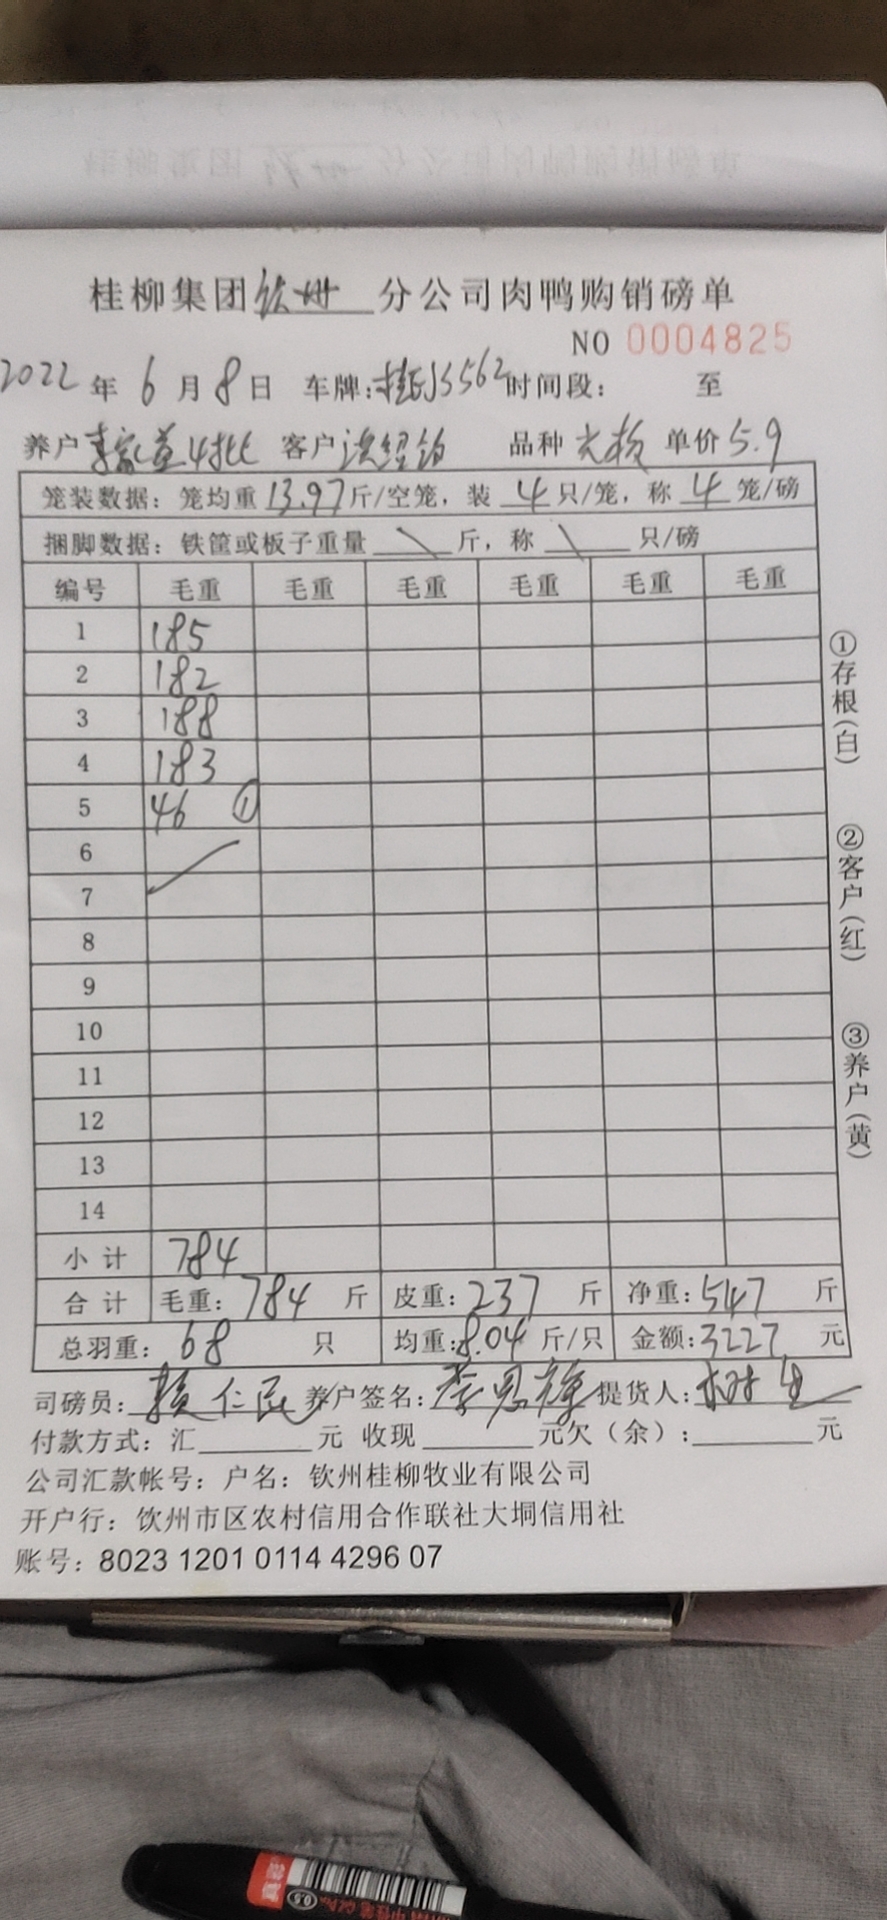 桂柳集团钦州分公司肉鸭购销磅单
NO 0004825
2022年6月8日 车牌:桂 J3562 时间段: 至
养户 4批 客户 品种 单价5.9
笼装数据:笼均重13.97斤/空笼,装4只/笼,称4笼/磅
捆脚数据:铁筐或板子重量\斤,称\只/磅
编号 毛重 毛重 毛重 毛重 毛重 毛重
1 185
2 182
3 188
4 183
5 46 ①
6
7
8
9
10
11
12
13
14
小计 784
合计 毛重:784斤 皮重:237斤 净重:547斤
总羽重:68只 均重:8.04斤/只 金额:3227元
司磅员:赖仁 养户签名:李思 提货人:
付款方式:汇 元 收现 元欠(余): 元
公司汇款帐号:户名:钦州桂柳牧业有限公司
开户行:饮州市区农村信用合作联社大垌信用社
账号:8023 1201 0114 4296 07
①存根(白)
②客户(红)
③养户(黄)
0.5